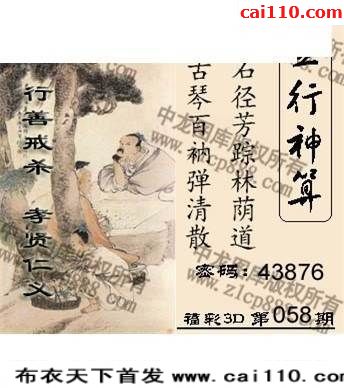 彩吧论坛
cai110.com
行善戒杀 孝贤仁义
行神算
石径芳踪林荫道
古琴百衲弹清散
密码:43876
福彩3D 第058期
中龙图库版权所有
www.zlcp888.com
布衣天下首发 www.cai110.com